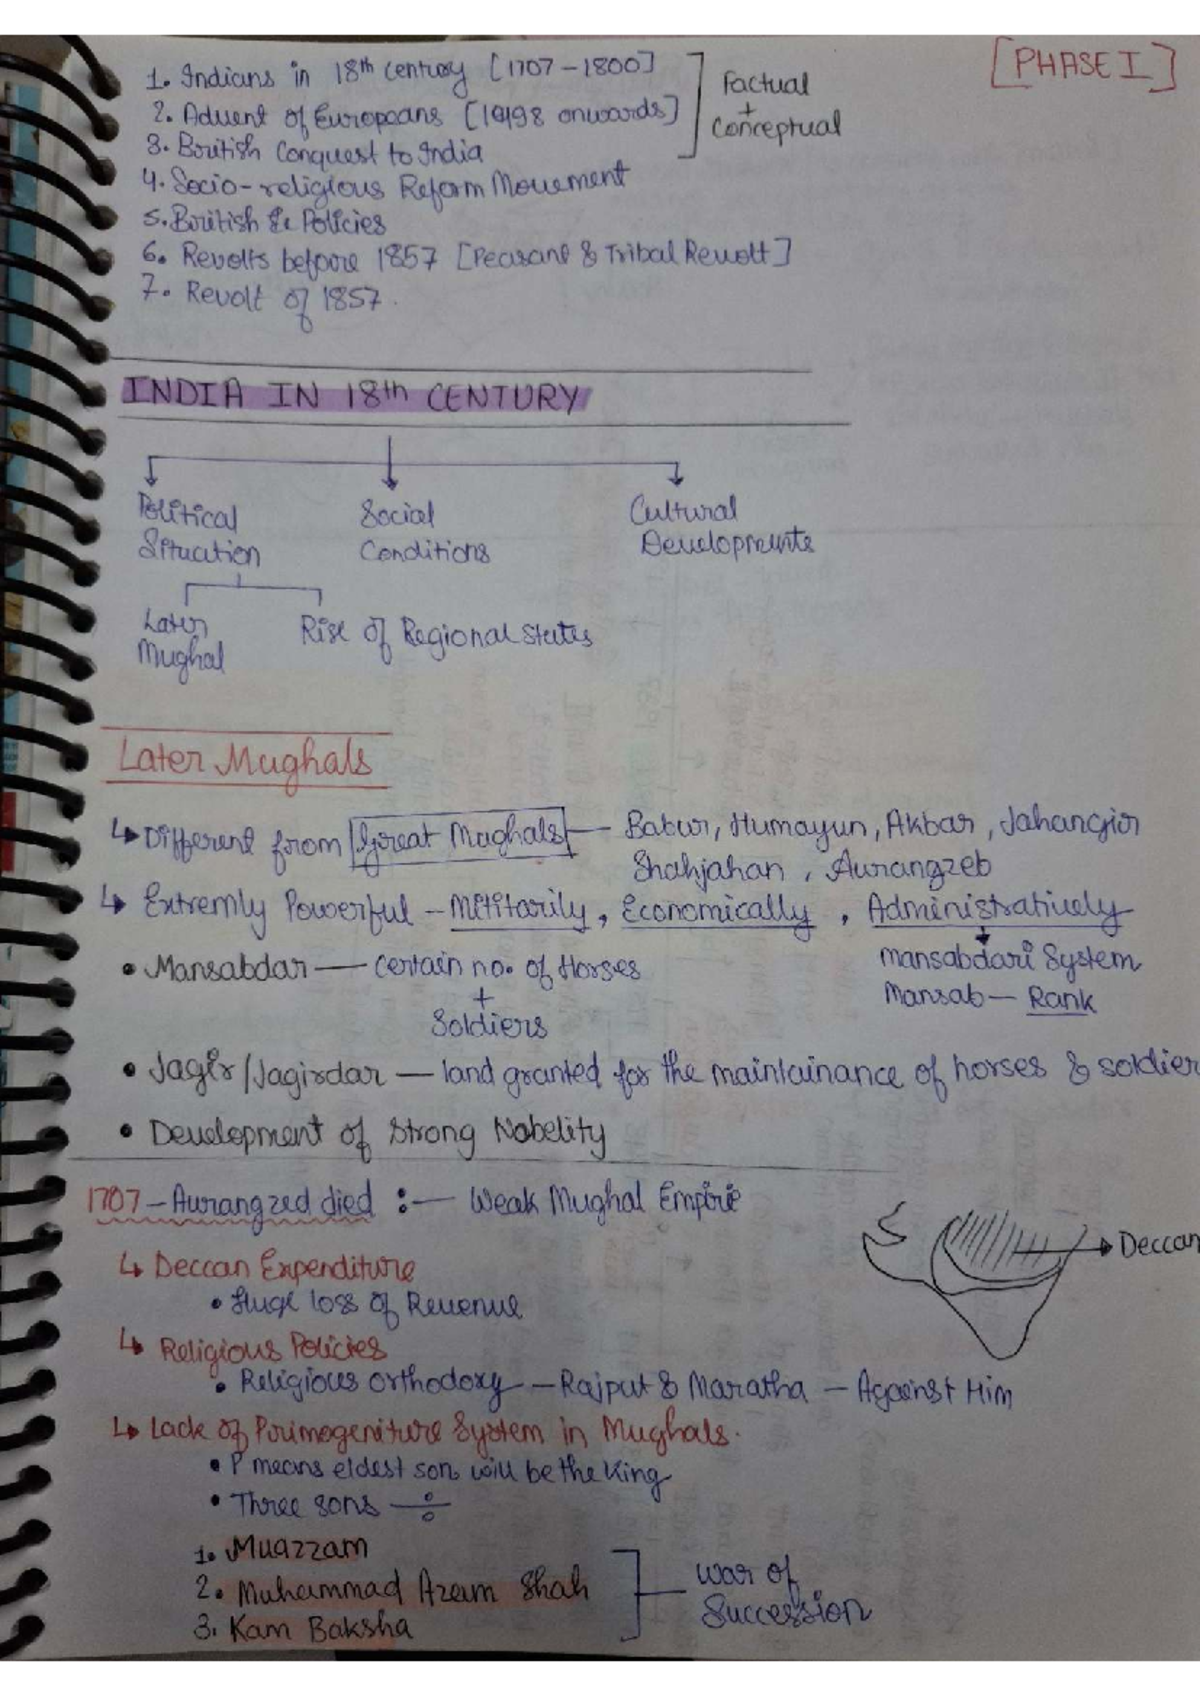 [PHASE I]
1. Indians in 18th century [1707-1800]
2. Advent of Europeans [1498 onwards]
3. British Conquest to India
Factual
+
Conceptual
4. Socio-religious Reform Movement
5. British & Policies
6. Revolts before 1857 [Peasant & Tribal Revolt]
7. Revolt of 1857.
INDIA IN 18th CENTURY
Political Social Cultural
Situation Conditions Developments
Later Rise of Regional States
Mughal
Later Mughals
↳ Different from Great Mughals — Babur, Humayun, Akbar, Jahangir
Shahjahan, Aurangzeb
↳ Extremly Powerful - Militarily, Economically, Administratively
• Mansabdar — certain no. of Horses
+
Soldiers
mansabdari System
Mansab — Rank
• Jagir/Jagirdar — land granted for the maintainance of horses & soldier
• Development of Strong Nobelity
1707 - Aurangzed died :— Weak Mughal Empire
↳ Deccan Expenditure
→ Deccan
• Huge loss of Revenue
↳ Religious Policies
• Religious orthodoxy — Rajput & Maratha — Against Him
↳ Lack of Primogeniture System in Mughals.
• P means eldest son will be the King
• Three sons ÷
1. Muazzam
2. Muhammad Azam Shah
3. Kam Baksha
War of
Succession